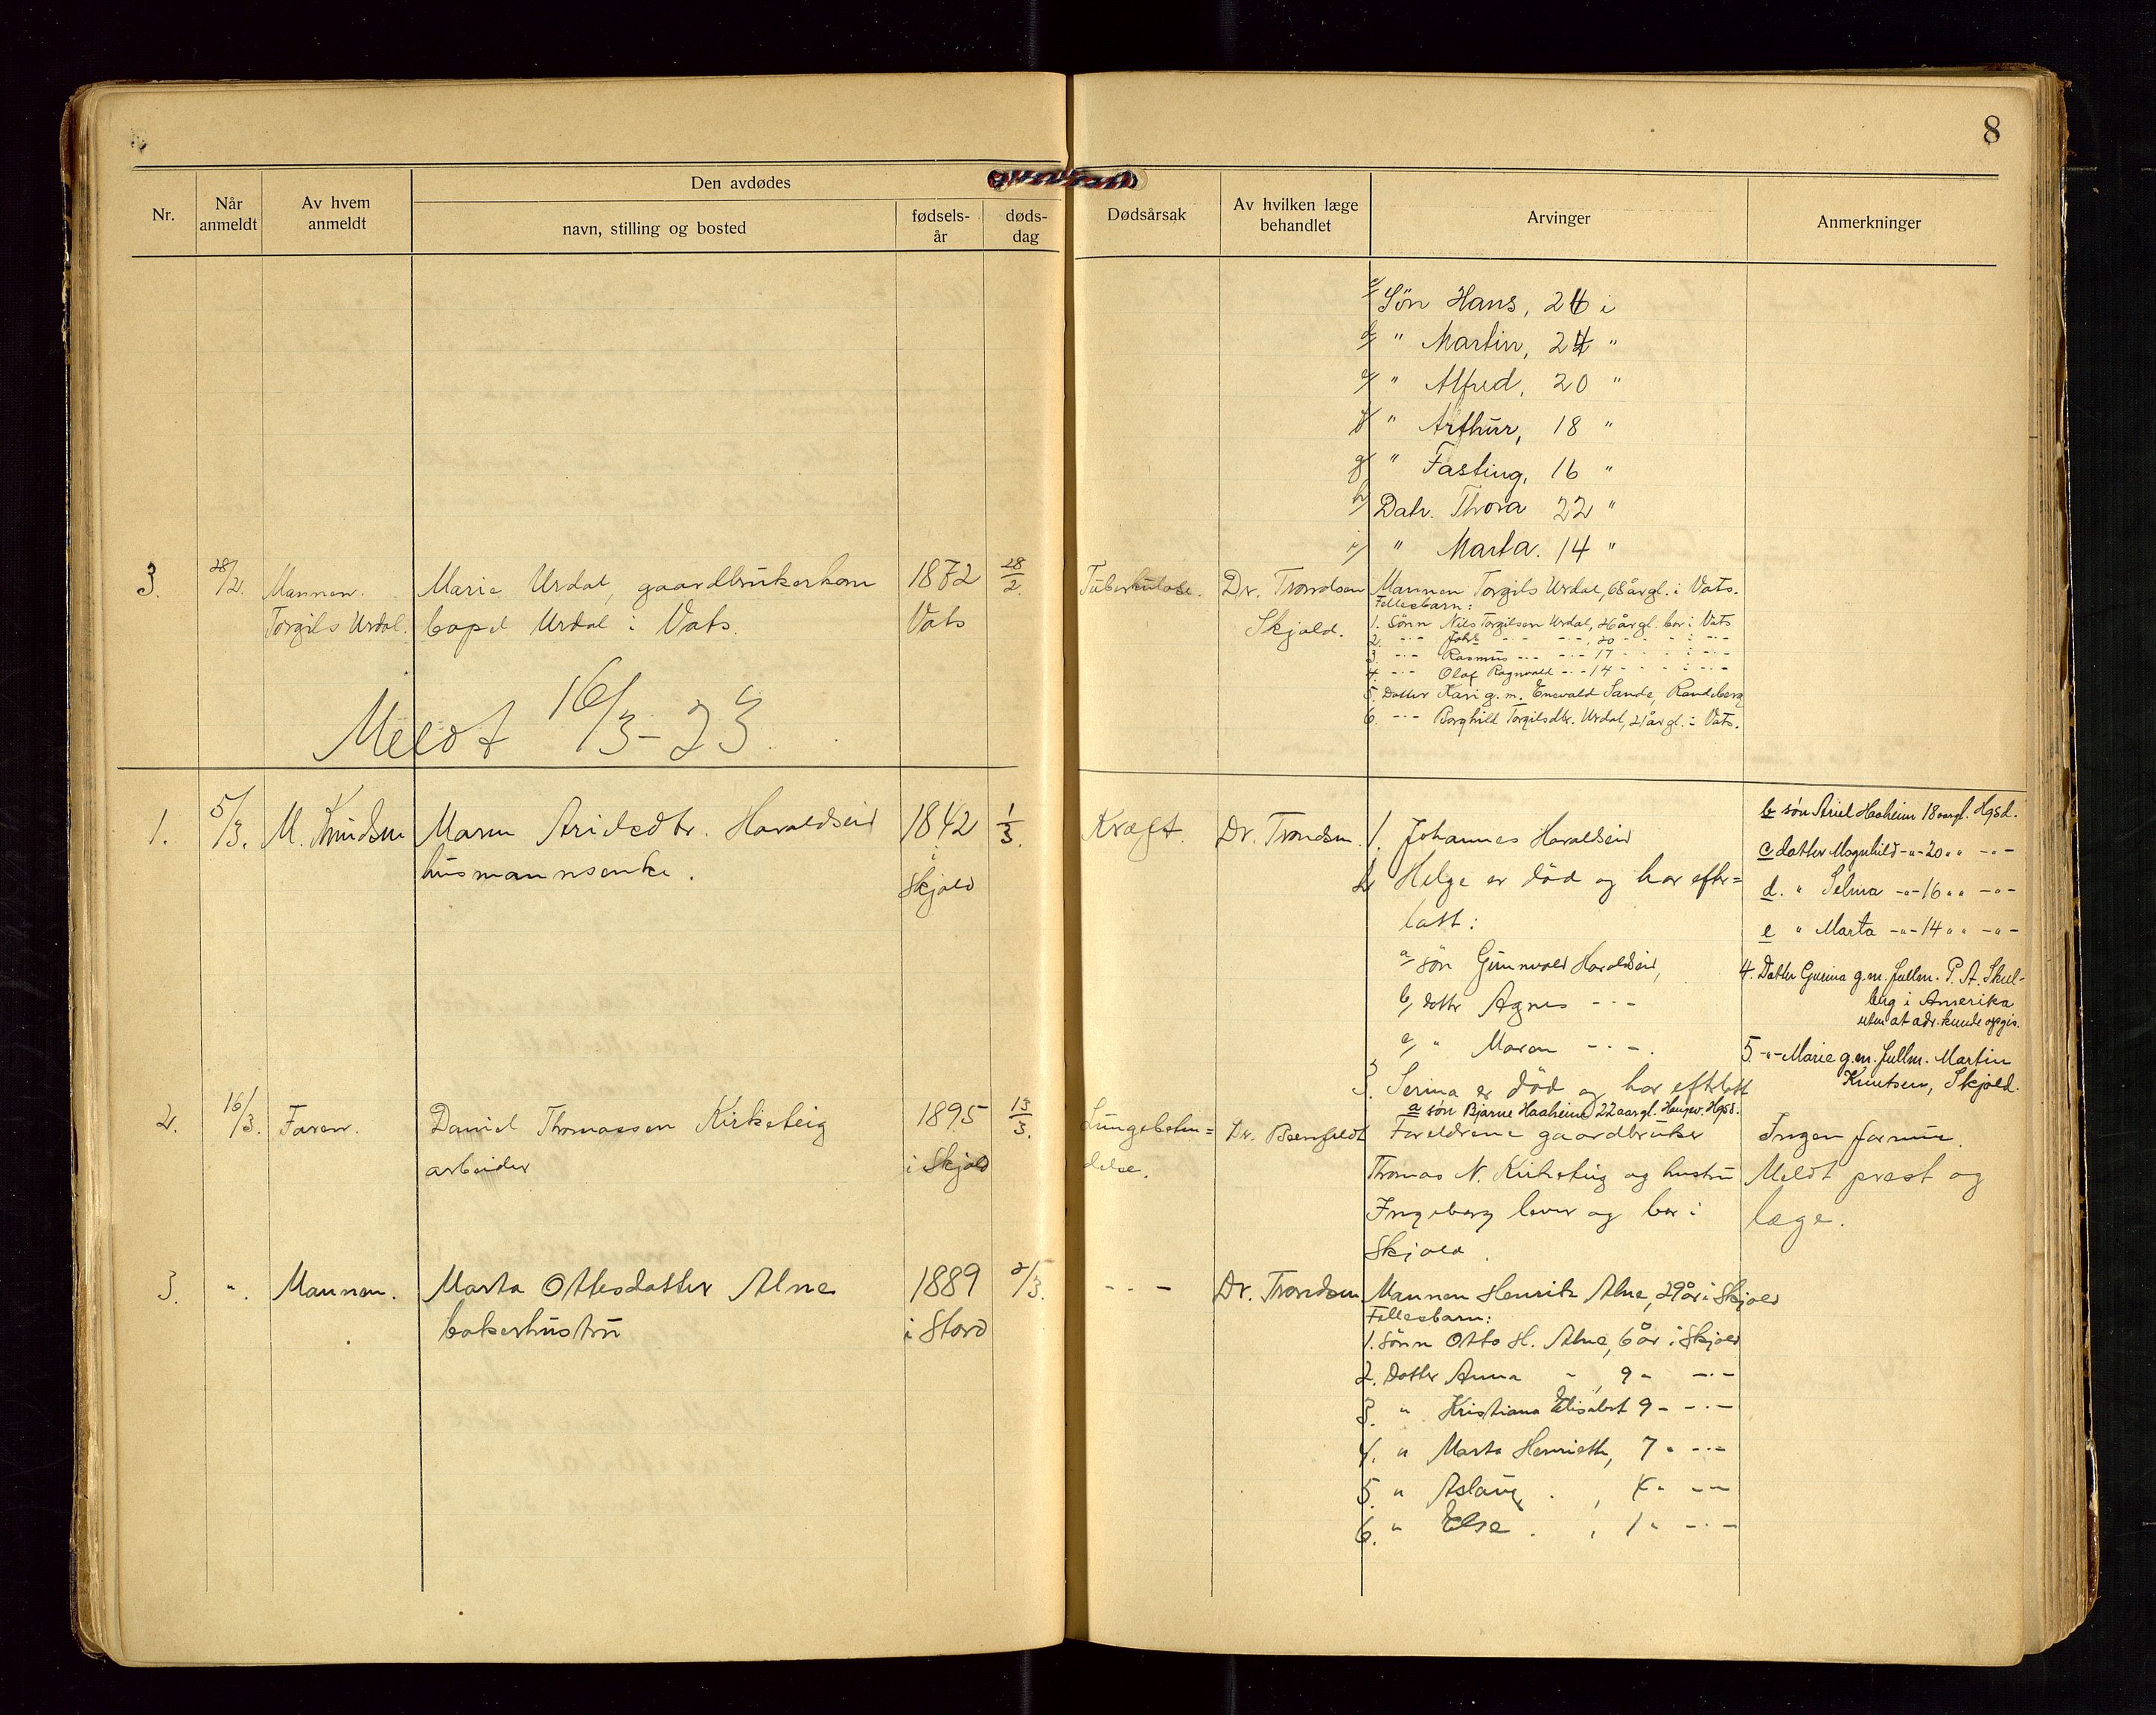 8
Nr.
Når anmeldt
Av hvem anmeldt
Den avdødes
navn, stilling og bosted
fødsels-år
døds-dag
Dødsårsak
Av hvilken læge behandlet
Arvinger
Anmerkninger
Søn Hans, 26 i
d/ " Martin, 24 "
e/ " Alfred, 20 "
f/ " Arthur, 18 "
g/ " Fasting, 16 "
h/ Datr. Thora 22 "
i/ " Marta. 14 "
3. 28/2. Mannen. Marie Urdal, gaardbrukerkone 1872 28/2.
Torgils Urdal. bopel Urdal i Vats. Vats
Tuberkulose. Dr. Trondsen
Skjold.
Mannen Torgils Urdal, 68 år gl. i Vats.
Fellesbarn:
1. Sønn Nils Torgilsen Urdal, 26 år gl. bor i Vats
2. -"- Johs -"- -"-, 20 - - - : -"-
3. -"- Rasmus -"- -"- 17 - - - : -"-
4. -"- Olaf Ragnvald -"- 14 - - - : -"-
5. Datter Kari g. m. Enevald Sande, Randeberg
6. -"- Borghild Torgilsdtr. Urdal, 21 år gl. i Vats.
Meldt 16/3-23.
1. 5/3. M. Knudsen Maren Arildsdtr. Haraldseid 1842 1/3.
husmannsenke. i Skjold
Kræft. Dr. Trondsen.
1. Johannes Haraldseid
2 Helge er død og har efter=
latt:
a søn Gunnvald Haraldseid,
b, datter Agnes -"-
c, " Maren -"-.
3. Serina er død og har efterlatt
a søn Bjarne Haaheim 22 aar gl. Hgsd.
b søn Ariel Haaheim 18 aar gl. Hgsd.
c datter Magnhild -"- 20 " " -"-
d. " Selma -"- 16 " " -"-
e " Marta -"- 14 " " -"-
4. Datter Gurina g.m. fullm. P. A. Skul-
berg i Amerika
uten at adr. kunde opgis.
5 -"- Marie g.m. fullm. Martin
Knutsen, Skjold.
2. 16/3. Faren. Daniel Thomassen Kirketeig 1895 13/3.
arbeider i Skjold
Lungebeten=
delse.
Dr. Bernfeldt
Foreldrene gaardbruker
Thomas N. Kirketeig og hustru
Ingeborg lever og bor i
Skjold.
Ingen formue.
Meldt prest og
læge.
3. ". Mannen. Marta Ottesdatter Alne 1889 2/3.
bakerhustru i Stord
- " - Dr. Trondsen
Mannen Henrik Alne, 29 år i Skjold
Fellesbarn:
1. Sønn Otto H. Alne, 6 år i Skjold
2. Datter Anna -, 9 - -"-
3. " Kristiana Elisabet 9 - -"-
4. " Marta Henriette, 7 " -"-
5. " Aslaug . , 4 " -"-
6. " Else . , 1 " -"-